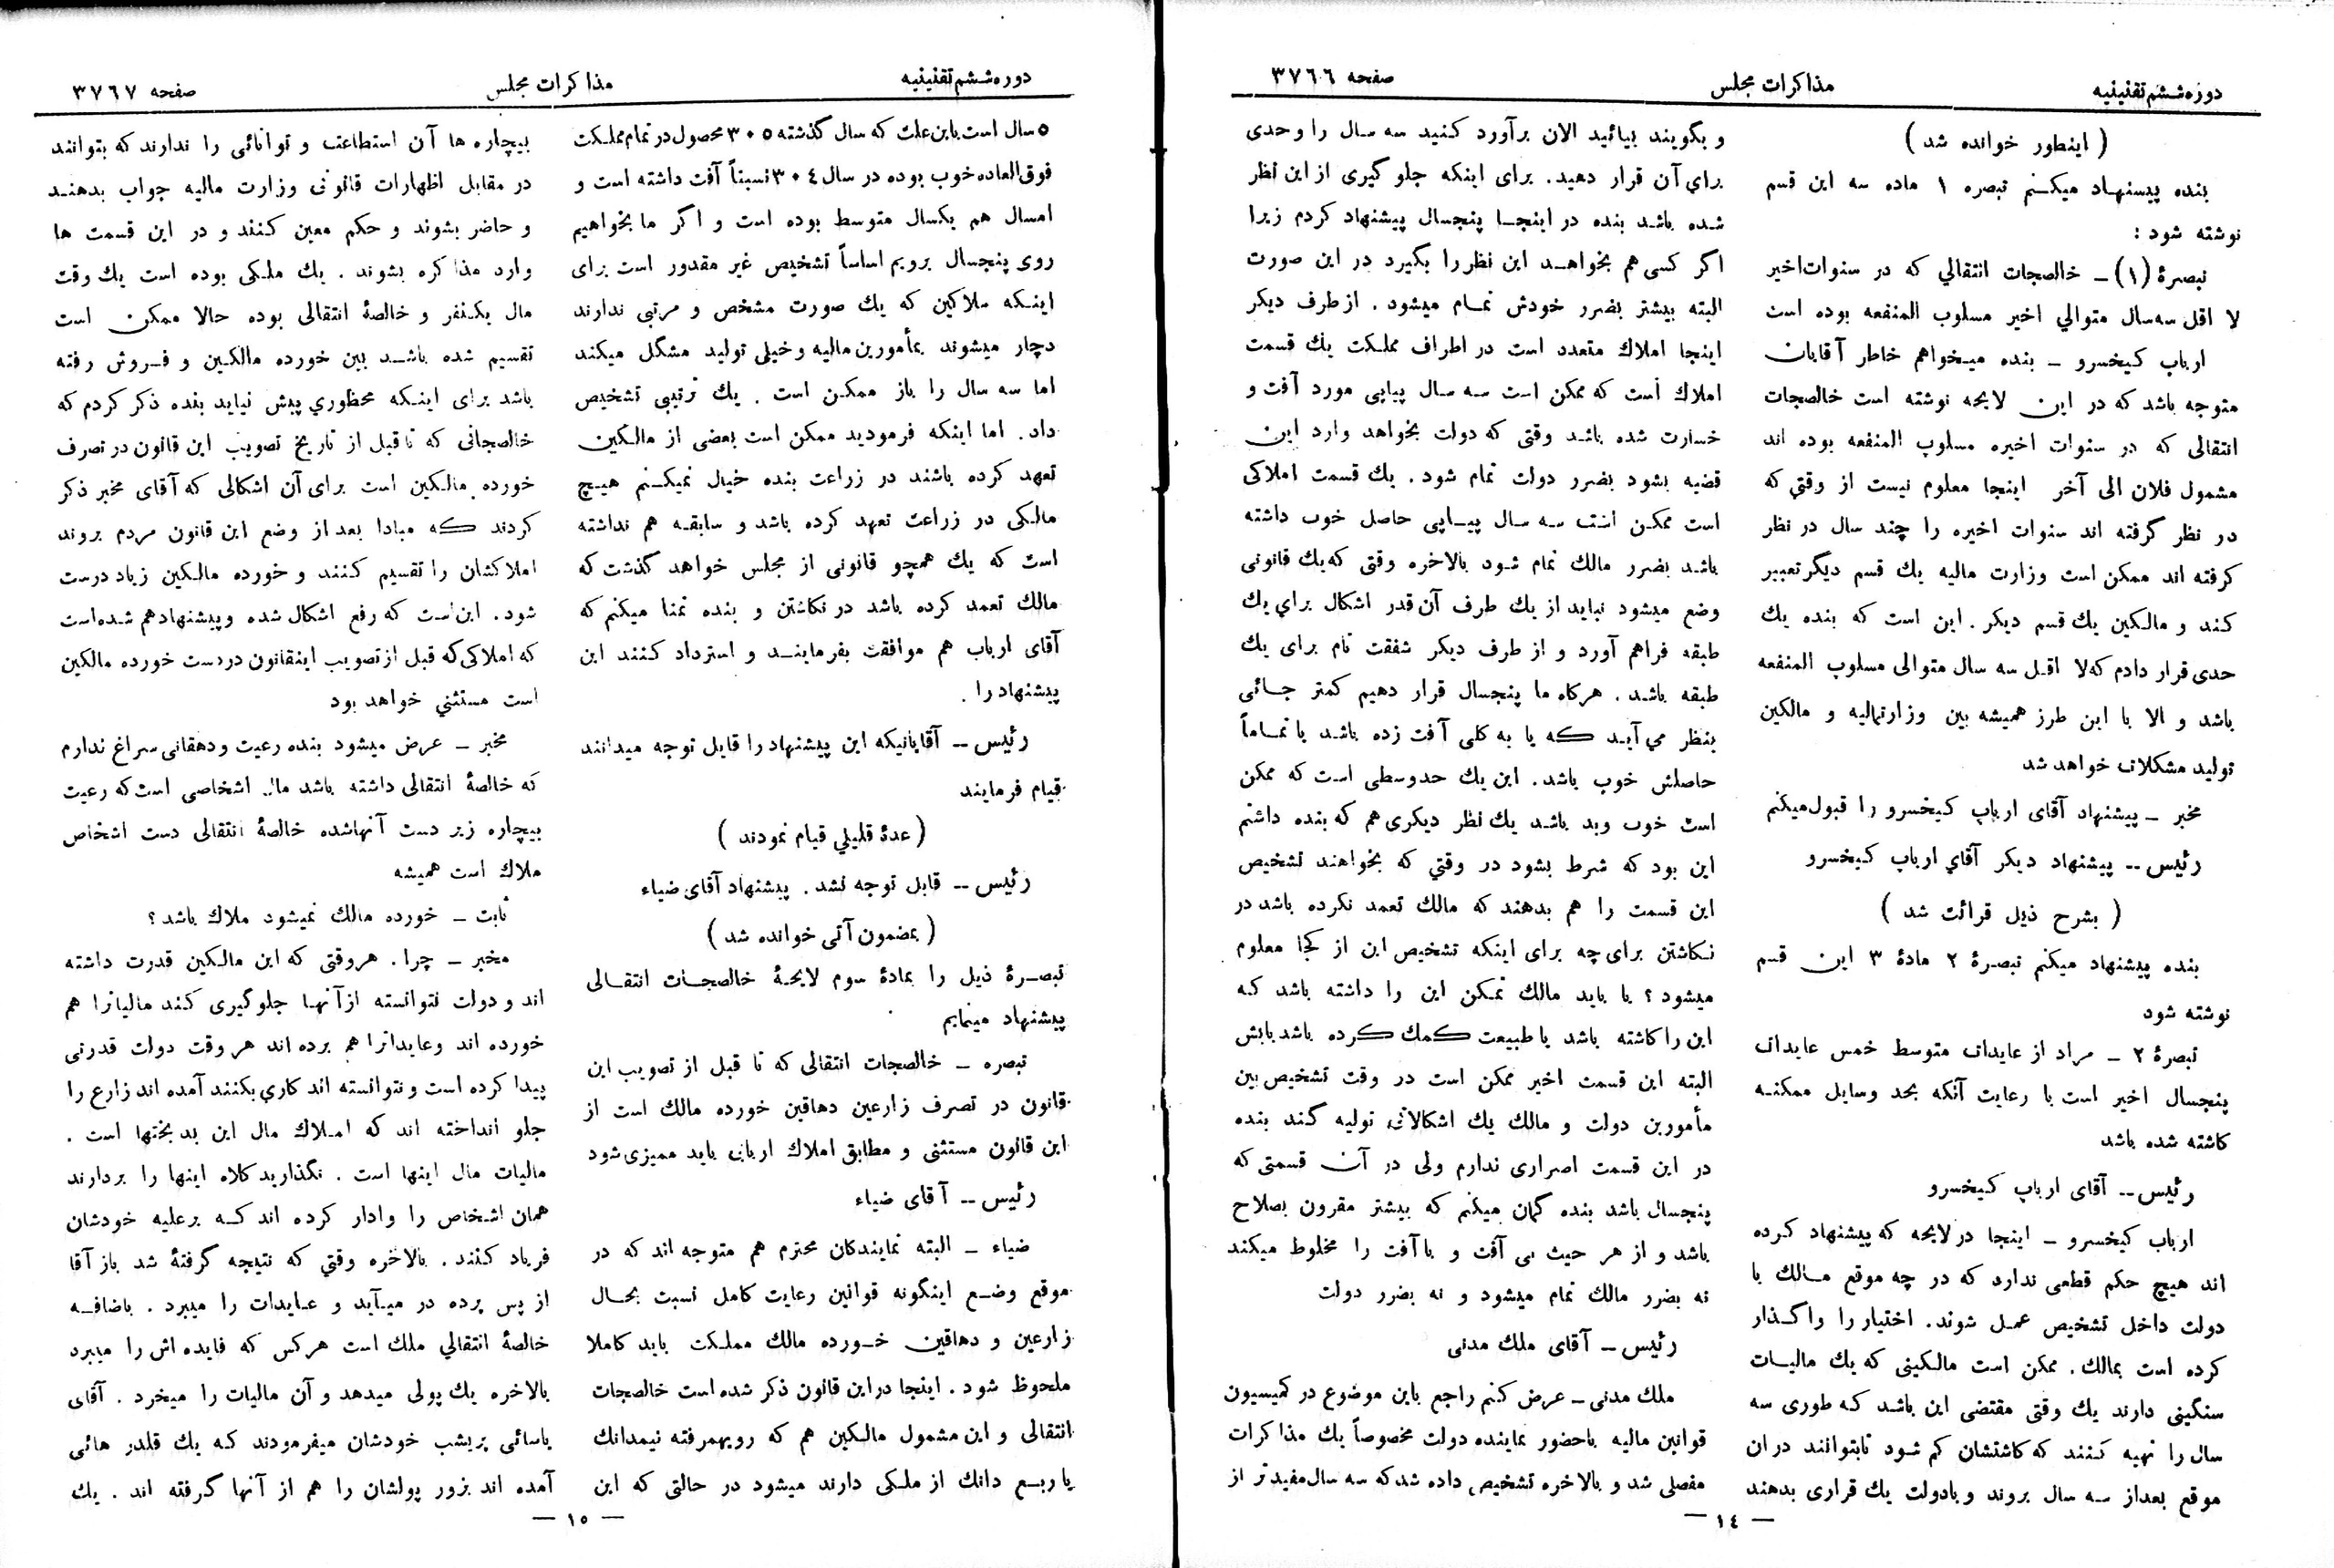 دوره ششم تقنینیه
مذاکرات مجلس
صفحه ۳۷۶۶
( اینطور خوانده شد )
بنده پیشنهاد میکنم تبصره ۱ ماده سه این قسم
نوشته شود :
تبصرهٔ (۱) ــ خالصجات انتقالي که در سنوات اخیر
لا اقل سه سال متوالي اخیر مسلوب المنفعه بوده است
ارباب کیخسرو ــ بنده میخواهم خاطر آقایان
متوجه باشد که در این لایحه نوشته است خالصجات
انتقالی که در سنوات اخیره مسلوب المنفعه بوده اند
مشمول فلان الی آخر اینجا معلوم نیست از وقتي که
در نظر گرفته اند سنوات اخیره را چند سال در نظر
گرفته اند ممکن است وزارت مالیه یك قسم دیگر تعبیر
کند و مالکین یك قسم دیگر . این است که بنده یك
حدی قرار دادم که لا اقل سه سال متوالی مسلوب المنفعه
باشد و الا با این طرز همیشه بین وزارتمالیه و مالکین
تولید مشکلات خواهد شد
مخبر ــ پیشنهاد آقای ارباب کیخسرو را قبول میکنم
رئیس ــ پیشنهاد دیگر آقاي ارباب کیخسرو
( بشرح ذیل قرائت شد )
بنده پیشنهاد میکنم تبصرهٔ ۲ مادهٔ ۳ این قسم
نوشته شود
تبصرهٔ ۲ ــ مراد از عایدات متوسط خمس عایدات
پنجسال اخیر است با رعایت آنکه بحد وسایل ممکنه
کاشته شده باشد
رئیس ــ آقای ارباب کیخسرو
ارباب کیخسرو ــ اینجا در لایحه که پیشنهاد کرده
اند هیچ حکم قطعی ندارد که در چه موقع مالك با
دولت داخل تشخیص عمل شوند . اختیار را واگذار
کرده است بمالك . ممکن است مالکینی که یك مالیات
سنگینی دارند یك وقتی مقتضی این باشد که طوری سه
سال را تهیه کنند که کاشتشان کم شود تابتوانند در ان
موقع بعداز سه سال بروند و بادولت یك قراری بدهند
ـــ ١٤ ـــ
و بگویند بیائید الان برآورد کنید سه سال را وحدی
برای آن قرار دهید . برای اینکه جلو گیری از این نظر
شده باشد بنده در اینجا پنجسال پیشنهاد کردم زیرا
اگر کسی هم بخواهد این نظر را بگیرد در این صورت
البته بیشتر بضرر خودش تمام میشود . از طرف دیگر
اینجا املاك متعدد است در اطراف مملکت یك قسمت
املاك است که ممکن است سه سال پیاپی مورد آفت و
خسارت شده باشد وقتی که دولت بخواهد وارد این
قضیه بشود بضرر دولت تمام شود . یك قسمت املاکی
است ممکن است سه سال پیاپی حاصل خوب داشته
باشد بضرر مالك تمام شود بالاخره وقتی که یك قانونی
وضع میشود نباید از یك طرف آن قدر اشکال براي یك
طبقه فراهم آورد و از طرف دیگر شفقت تام برای یك
طبقه باشد . هرگاه ما پنجسال قرار دهیم کمتر جائی
بنظر می آید که یا به کلی آفت زده باشد یا تماماً
حاصلش خوب باشد . این یك حدوسطی است که ممکن
است خوب وبد باشد یك نظر دیگری هم که بنده داشتم
این بود که شرط بشود در وقتي که بخواهند تشخیص
این قسمت را هم بدهند که مالك تعمد نکرده باشد در
نکاشتن برای چه برای اینکه تشخیص این از کجا معلوم
میشود ؟ یا باید مالك تمکن این را داشته باشد که
این را کاشته باشد یا طبیعت کمك کرده باشد بابش
البته این قسمت اخیر ممکن است در وقت تشخیص بین
مأمورین دولت و مالك یك اشکالاتی تولیه کند بنده
در این قسمت اصراری ندارم ولی در آن قسمتی که
پنجسال باشد بنده گمان میکنم که بیشتر مقرون بصلاح
باشد و از هر حیث بی آفت و با آفت را مخلوط میکند
نه بضرر مالك تمام میشود و نه بضرر دولت
رئیس ــ آقای ملك مدنی
ملك مدنی ــ عرض کنم راجع باین موضوع در کمیسیون
قوانین مالیه باحضور نماینده دولت مخصوصاً یك مذاکرات
مفصلی شد و بالاخره تشخیص داده شد که سه سال مفیدتر از
دوره ششم تقنینیه
مذاکرات مجلس
صفحه ۳۷۶۷
۵ سال است باین علت که سال گذشته ۳۰۵ محصول در تمام مملکت
فوق العاده خوب بوده در سال ۳۰٤ نسبتاً آفت داشته است و
امسال هم یکسال متوسط بوده است و اگر ما بخواهیم
روی پنجسال برویم اساساً تشخیص غیر مقدور است برای
اینکه ملاکین که یك صورت مشخص و مرتبی ندارند
دچار میشوند بمأمورین مالیه و خیلی تولید مشگل میکند
اما سه سال را باز ممکن است . یك ترتیبی تشخیص
داد . اما اینکه فرمودید ممکن است بعضی از مالکین
تعهد کرده باشند در زراعت بنده خیال نمیکنم هیچ
مالکی در زراعت تعهد کرده باشد و سابقه هم نداشته
است که یك همچو قانونی از مجلس خواهد گذشت که
مالك تعمد کرده باشد در نکاشتن و بنده تمنا میکنم که
آقای ارباب هم موافقت بفرمایند و استرداد کنند این
پیشنهاد را .
رئیس ــ آقایانیکه این پیشنهاد را قابل توجه میدانند
قیام فرمایند
( عدهٔ قلیلي قیام نمودند )
رئیس ــ قابل توجه نشد . پیشنهاد آقای ضیاء
( بمضمون آتی خوانده شد )
تبصرهٔ ذیل را بمادهٔ سوم لایحهٔ خالصجات انتقالی
پیشنهاد مینمایم
تبصره ــ خالصجات انتقالی که تا قبل از تصویب این
قانون در تصرف زارعین دهاقین خورده مالك است از
این قانون مستثنی و مطابق املاك اربابی باید ممیزی شود
رئیس ــ آقای ضیاء
ضیاء ــ البته نمایندکان محترم هم متوجه اند که در
موقع وضع اینگونه قوانین رعایت کامل نسبت بحال
زارعین و دهاقین خورده مالك مملکت باید کاملا
ملحوظ شود . اینجا در این قانون ذکر شده است خالصجات
انتقالی و این مشمول مالکین هم که رویهمرفته نیمدانك
یا ربع دانك از ملکی دارند میشود در حالتی که این
ـــ ١٥ ـــ
بیچاره ها آن استطاعت و توانائی را ندارند که بتوانند
در مقابل اظهارات قانونی وزارت مالیه جواب بدهند
و حاضر بشوند و حکم معین کنند و در این قسمت ها
وارد مذاکره بشوند . یك ملکی بوده است یك وقت
مال یکنفر و خالصهٔ انتقالی بوده حالا ممکن است
تقسیم شده باشد بین خورده مالکین و فروش رفته
باشد برای اینکه محظوري پیش نیاید بنده ذکر کردم که
خالصجاتی که تا قبل از تاریخ تصویب این قانون در تصرف
خورده مالکین است برای آن اشکالی که آقای مخبر ذکر
کردند که مبادا بعد از وضع این قانون مردم بروند
املاکشان را تقسیم کنند و خورده مالکین زیاد درست
شود . این است که رفع اشکال شده و پیشنهاد هم شده است
که املاکی که قبل از تصویب اینقانون در دست خورده مالکین
است مستثني خواهد بود
مخبر ــ عرض میشود بنده رعیت و دهقانی سراغ ندارم
که خالصهٔ انتقالی داشته باشد مال اشخاصی است که رعیت
بیچاره زیر دست آنهاشده خالصهٔ انتقالی دست اشخاص
ملاك است همیشه
ثابت ــ خورده مالك نمیشود ملاك باشد ؟
مخبر ــ چرا . هر وقتی که این مالکین قدرت داشته
اند و دولت نتوانسته از آنها جلوگیری کند مالیاترا هم
خورده اند وعایداترا هم برده اند هر وقت دولت قدرتی
پیدا کرده است و نتوانسته اند کاري بکنند آمده اند زارع را
جلو انداخته اند که املاك مال این بدبختها است .
مالیات مال اینها است . نگذارید کلاه اینها را بردارند
همان اشخاص را وادار کرده اند که برعلیه خودشان
فریاد کنند . بالاخره وقتي که نتیجه گرفتهٔ شد باز آقا
از پس پرده در میآید و عایدات را میبرد . باضافه
خالصهٔ انتقالي ملك است هر کس که فایده اش را میبرد
بالاخره یك پولی میدهد و آن مالیات را میخرد . آقای
یاسائی پریشب خودشان میفرمودند که یك قلدر هائی
آمده اند بزور پولشان را هم از آنها گرفته اند . یك